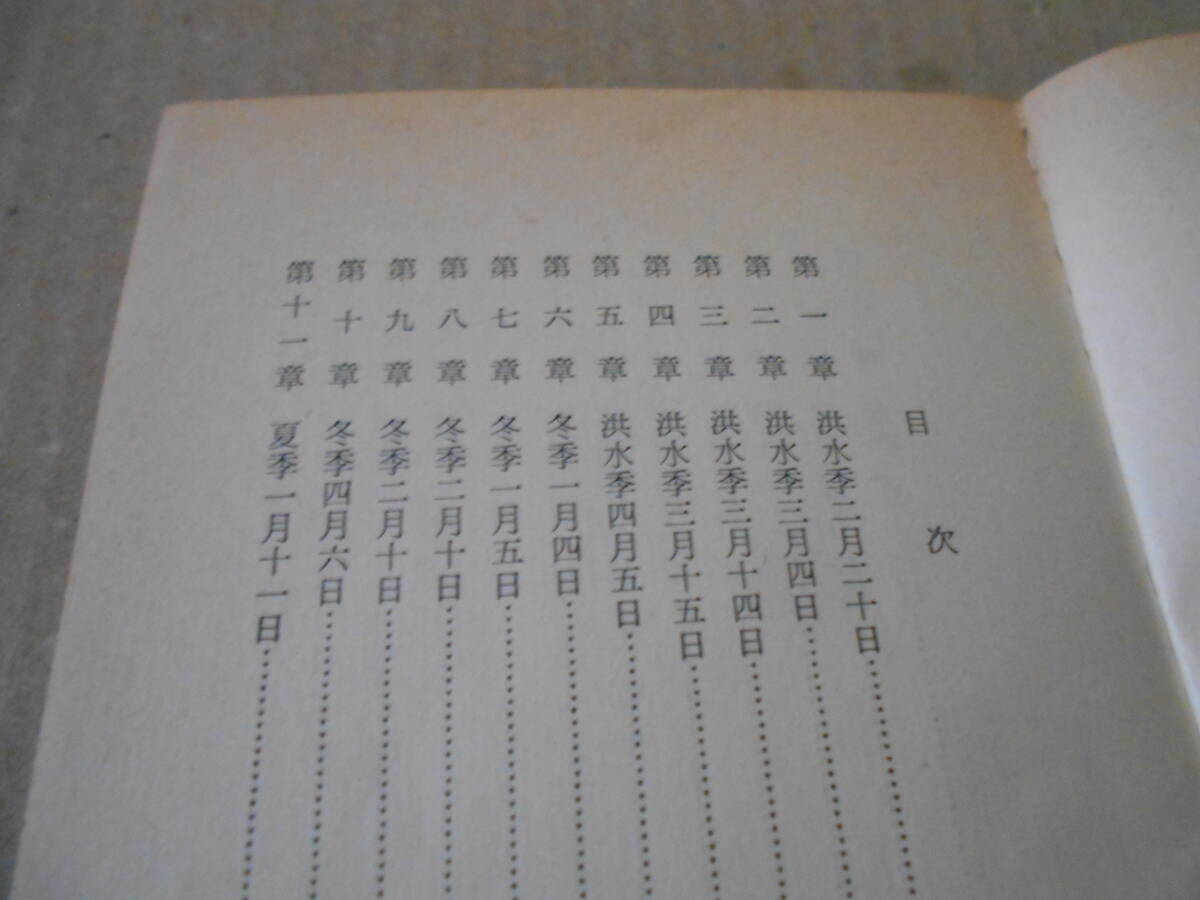 目次
第一章 洪水季二月二十日……………………
第二章 洪水季三月四日……………………
第三章 洪水季三月十四日……………………
第四章 洪水季三月十五日……………………
第五章 洪水季四月五日……………………
第六章 冬季一月四日……………………
第七章 冬季一月五日……………………
第八章 冬季二月十日……………………
第九章 冬季二月十日……………………
第十章 冬季四月六日……………………
第十一章 夏季一月十一日……………………